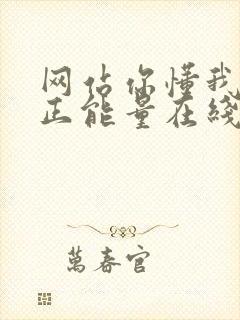 网站你懂我
正能量在线
萬春官